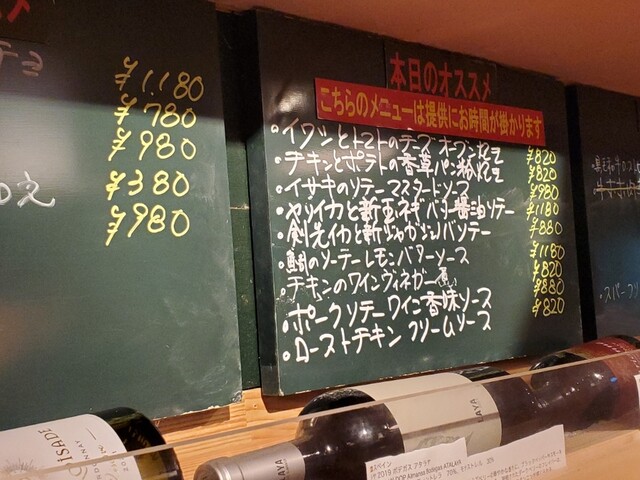 ¥1.180
¥780
¥980
¥380
¥980
本日のオススメ
こちらのメニューは提供にお時間が掛かります
・イワシとトマトのチーズオーブン焼 ¥820
・チキンとポテトの香草パン粉焼 ¥820
・イサキのソテーマスタードソース ¥980
・ヤリイカと新玉ネギバター醤油ソテー ¥1180
・剣先イカと新じゃがアンチョビソテー ¥880
・鯛のソーテーレモンバターソース ¥1180
・チキンのワインヴィネガー煮 ¥820
・ポークソテーワイン香味ソース ¥880
・ローストチキンクリームソース ¥820
ISADE
LAYA
ATALAYA